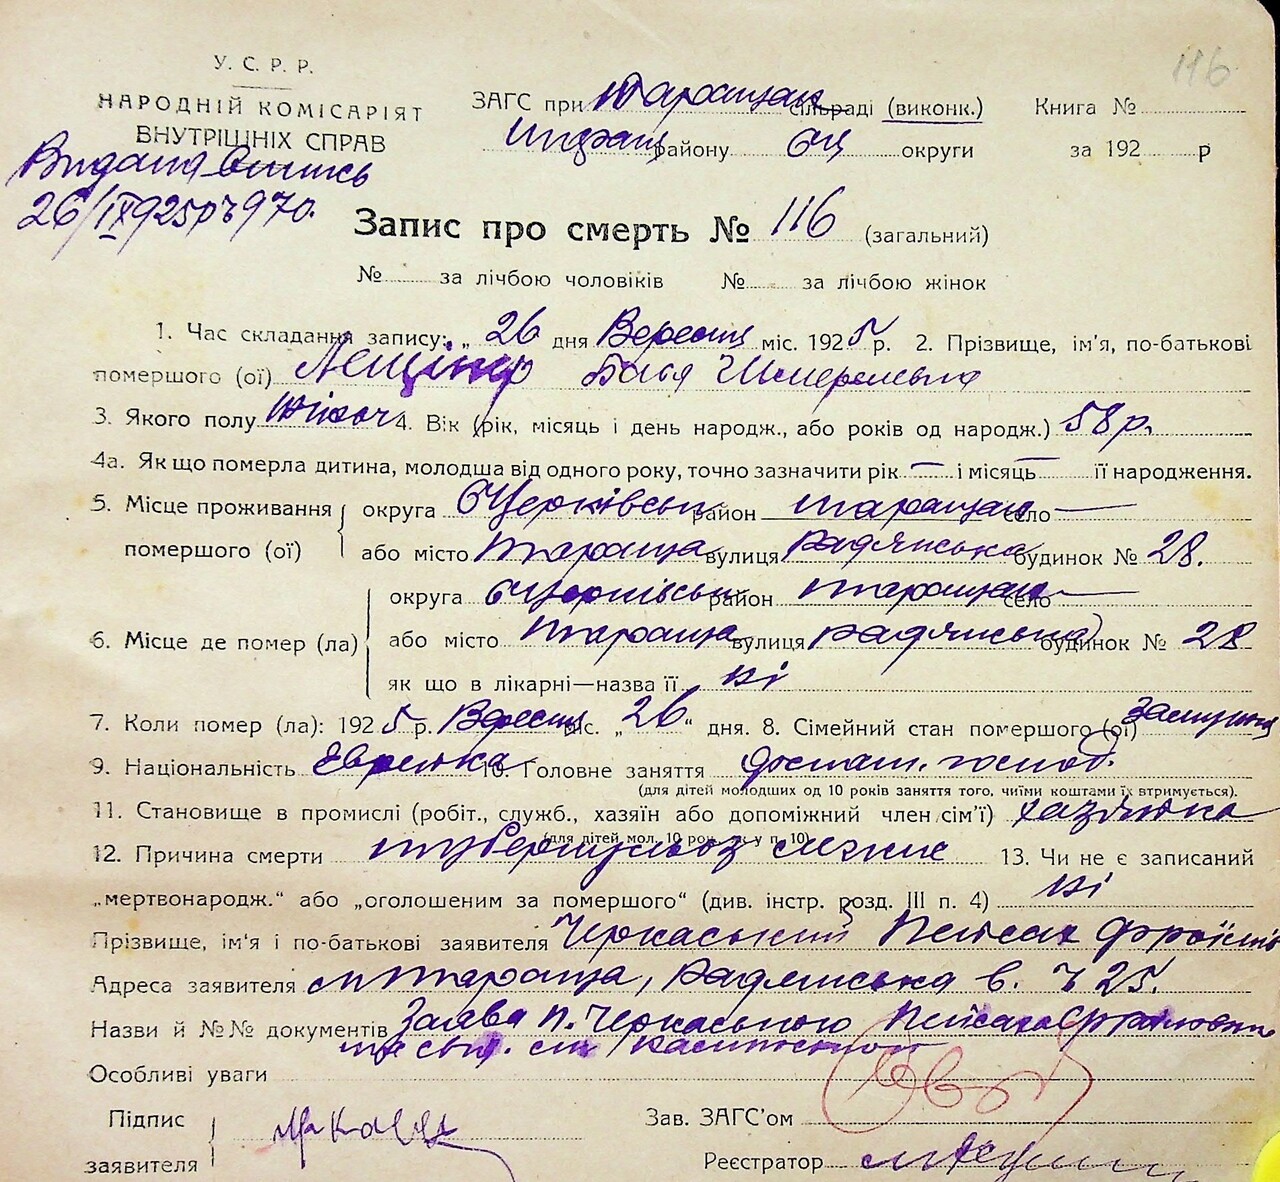 116
У. С. Р. Р.
НАРОДНІЙ КОМІСАРІЯТ
ВНУТРІШНІХ СПРАВ
ЗАГС при Таращан сільраді (виконк.) Книга №
району бЦ округи за 192 р
Видана Випись
26/IX 925р № 970.
Запис про смерть № 116 (загальний)
№ за лічбою чоловіків № за лічбою жінок
1. Час складання запису: „ 26 дня Вересня міс. 1925 р. 2. Прізвище, ім'я, по-батькові
помершого (ої) Лещінер Бася Шмерельовна
3. Якого полу жіноч 4. Вік (рік, місяць і день народж., або років од народж.) 58 р.
4а. Як що померла дитина, молодша від одного року, точно зазначити рік — і місяць — її народження.
5. Місце проживання помершого (ої) округа бЦерківськ район Таращан село —
або місто Тараща вулиця Радянська будинок № 28.
6. Місце де помер (ла) округа бЦерківськ район Таращан село —
або місто Тараща вулиця Радянська будинок № 28
як що в лікарні—назва її ні
7. Коли помер (ла): 1925 р. Вересня міс. „ 26 “ дня. 8. Сімейний стан помершого (ої) Замужня
9. Національність Еврейка 10. Головне заняття домаш. господ.
(для дітей молодших од 10 років заняття того, чиїми коштами їх втримується).
11. Становище в промислі (робіт., служб., хазяїн або допоміжний член сім'ї) хазяйка
(для дітей мол. 10 рок., як у п. 10)
12. Причина смерти туберкульоз легких 13. Чи не є записаний
„мертвонародж.“ або „оголошеним за помершого“ (див. інстр. розд. III п. 4) ні
Прізвище, ім'я і по-батькові заявителя Черкаський Пейсах Фроїмів
Адреса заявителя м Тараща, Радянська в. № 25.
Назви й №№ документів Заява п. Черкаського Пейсаха Фроїмовича
Особливі уваги
Підпис заявителя
Зав. ЗАГС'ом
Реєстратор